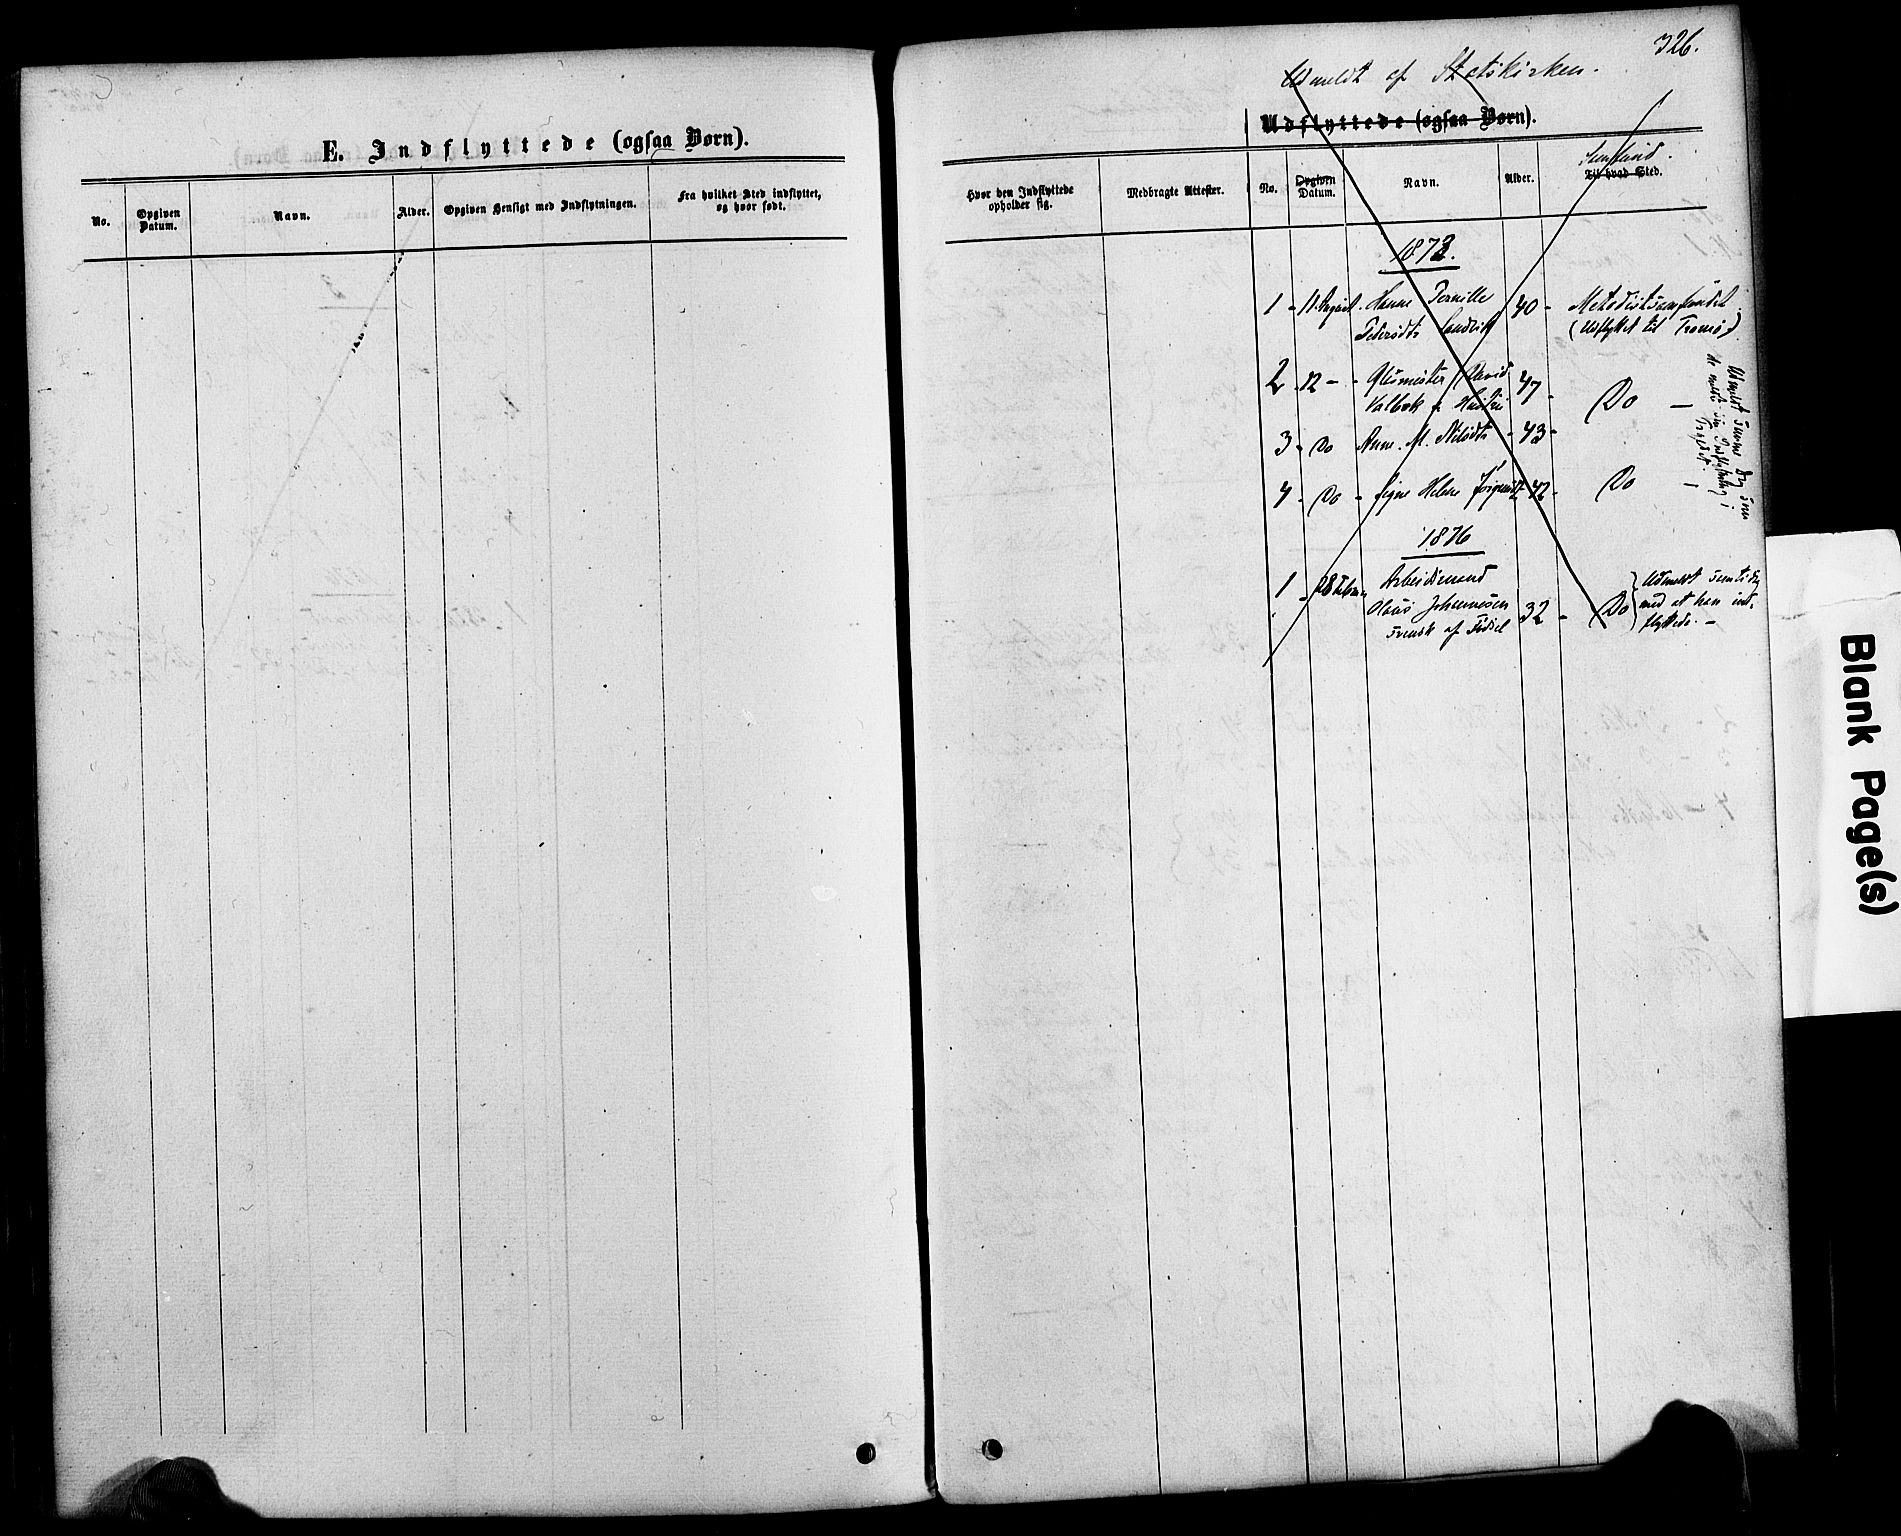 E. Indflyttede (ogsaa Børn).
No.
Opgiven Datum.
Navn.
Alder.
Opgiven Hensigt med Indflytningen.
Fra hvilket Sted indflyttet, og hvor født.
326.
Udmeldt af Statskirken.
Udflyttede (ogsaa Børn).
Hvor den Indflyttede opholder sig.
Medbragte Attester.
No.
Opgiven Datum.
Navn.
Alder.
Samfund.
Til hvad Sted.
1872.
1 - 11 August. Hanne Pernille 40 - Methodistsamfundet
Pedersdtr Sandvik (Udflyttet til Tromsø)
2 - 12 - - Glasmester David 47 - Do -
Valbek & Hustru
3 - Do Anne M. Nilsdtr - 43 -
4 - Do - Signe Helene Jørgensdtr 42 - Do -
Udmeldt samme Dag som
de meldte sin Indflytning i
1876
1 - 28 Arbeidsmand
Olaus Johannesen 32 - Do
svensk af Fødsel
Udmeldt samtidig
med at han ind-
flyttede. -
Blank Page(s)